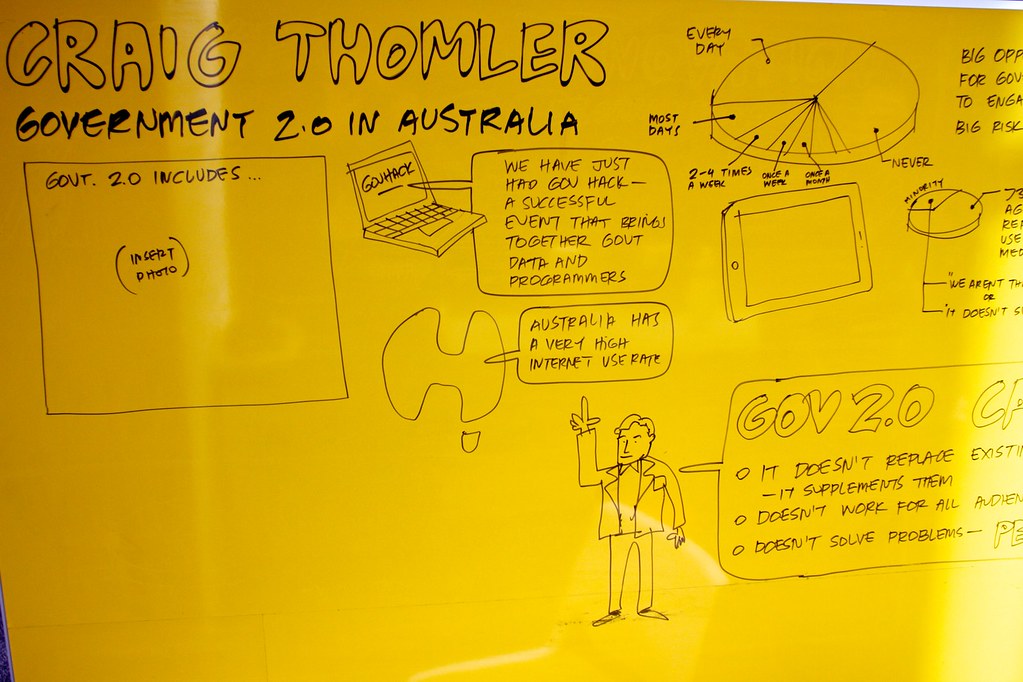 CRAIG THOMLER
GOVERNMENT 2.0 IN AUSTRALIA
GOVT. 2.0 INCLUDES ...
(INSERT
PHOTO)
GOVHACK
WE HAVE JUST
HAD GOV HACK —
A SUCCESSFUL
EVENT THAT BRINGS
TOGETHER GOVT
DATA AND
PROGRAMMERS
AUSTRALIA HAS
A VERY HIGH
INTERNET USE RATE
EVERY
DAY
MOST
DAYS
2-4 TIMES
A WEEK
ONCE A
WEEK
ONCE A
MONTH
NEVER
BIG OPP
FOR GOV
TO ENGA
BIG RISK
MINORITY
73
AG
REP
USE
MED
"WE AREN'T TH
OR
"IT DOESN'T S
GOV 2.0 CA
O IT DOESN'T REPLACE EXISTIN
— IT SUPPLEMENTS THEM
O DOESN'T WORK FOR ALL AUDIEN
O DOESN'T SOLVE PROBLEMS — PE